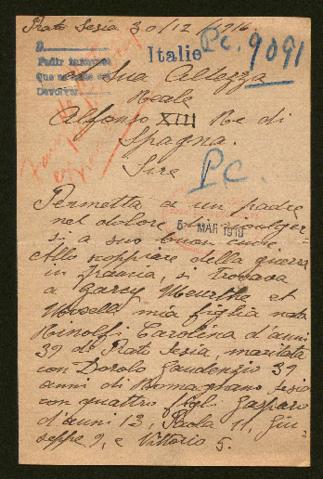 Prato Sesia 30/12/1916
Italie
Pc. 9091
D.
Pedir informes
Que se pide en
Devolver
a Sua Altezza
Reale
Alfonso XIII Re di
Spagna.
Sire
PC.
Permetta a un padre
nel dolore di rivolger
5 MAR 1918
si a suo buon cuore.
Allo scoppiare della guerra
in francia, si trovava
a Meurthe et
Moselle mia figlia nata
Carolina d'anni
39 di Prato Sesia, maritata
con Gaudenzio 39
anni di Romagnano Sesia
con quattro figli Gasparo
d'anni 13, Paola 11, Giu-
seppe 9, e Vittorio 5.